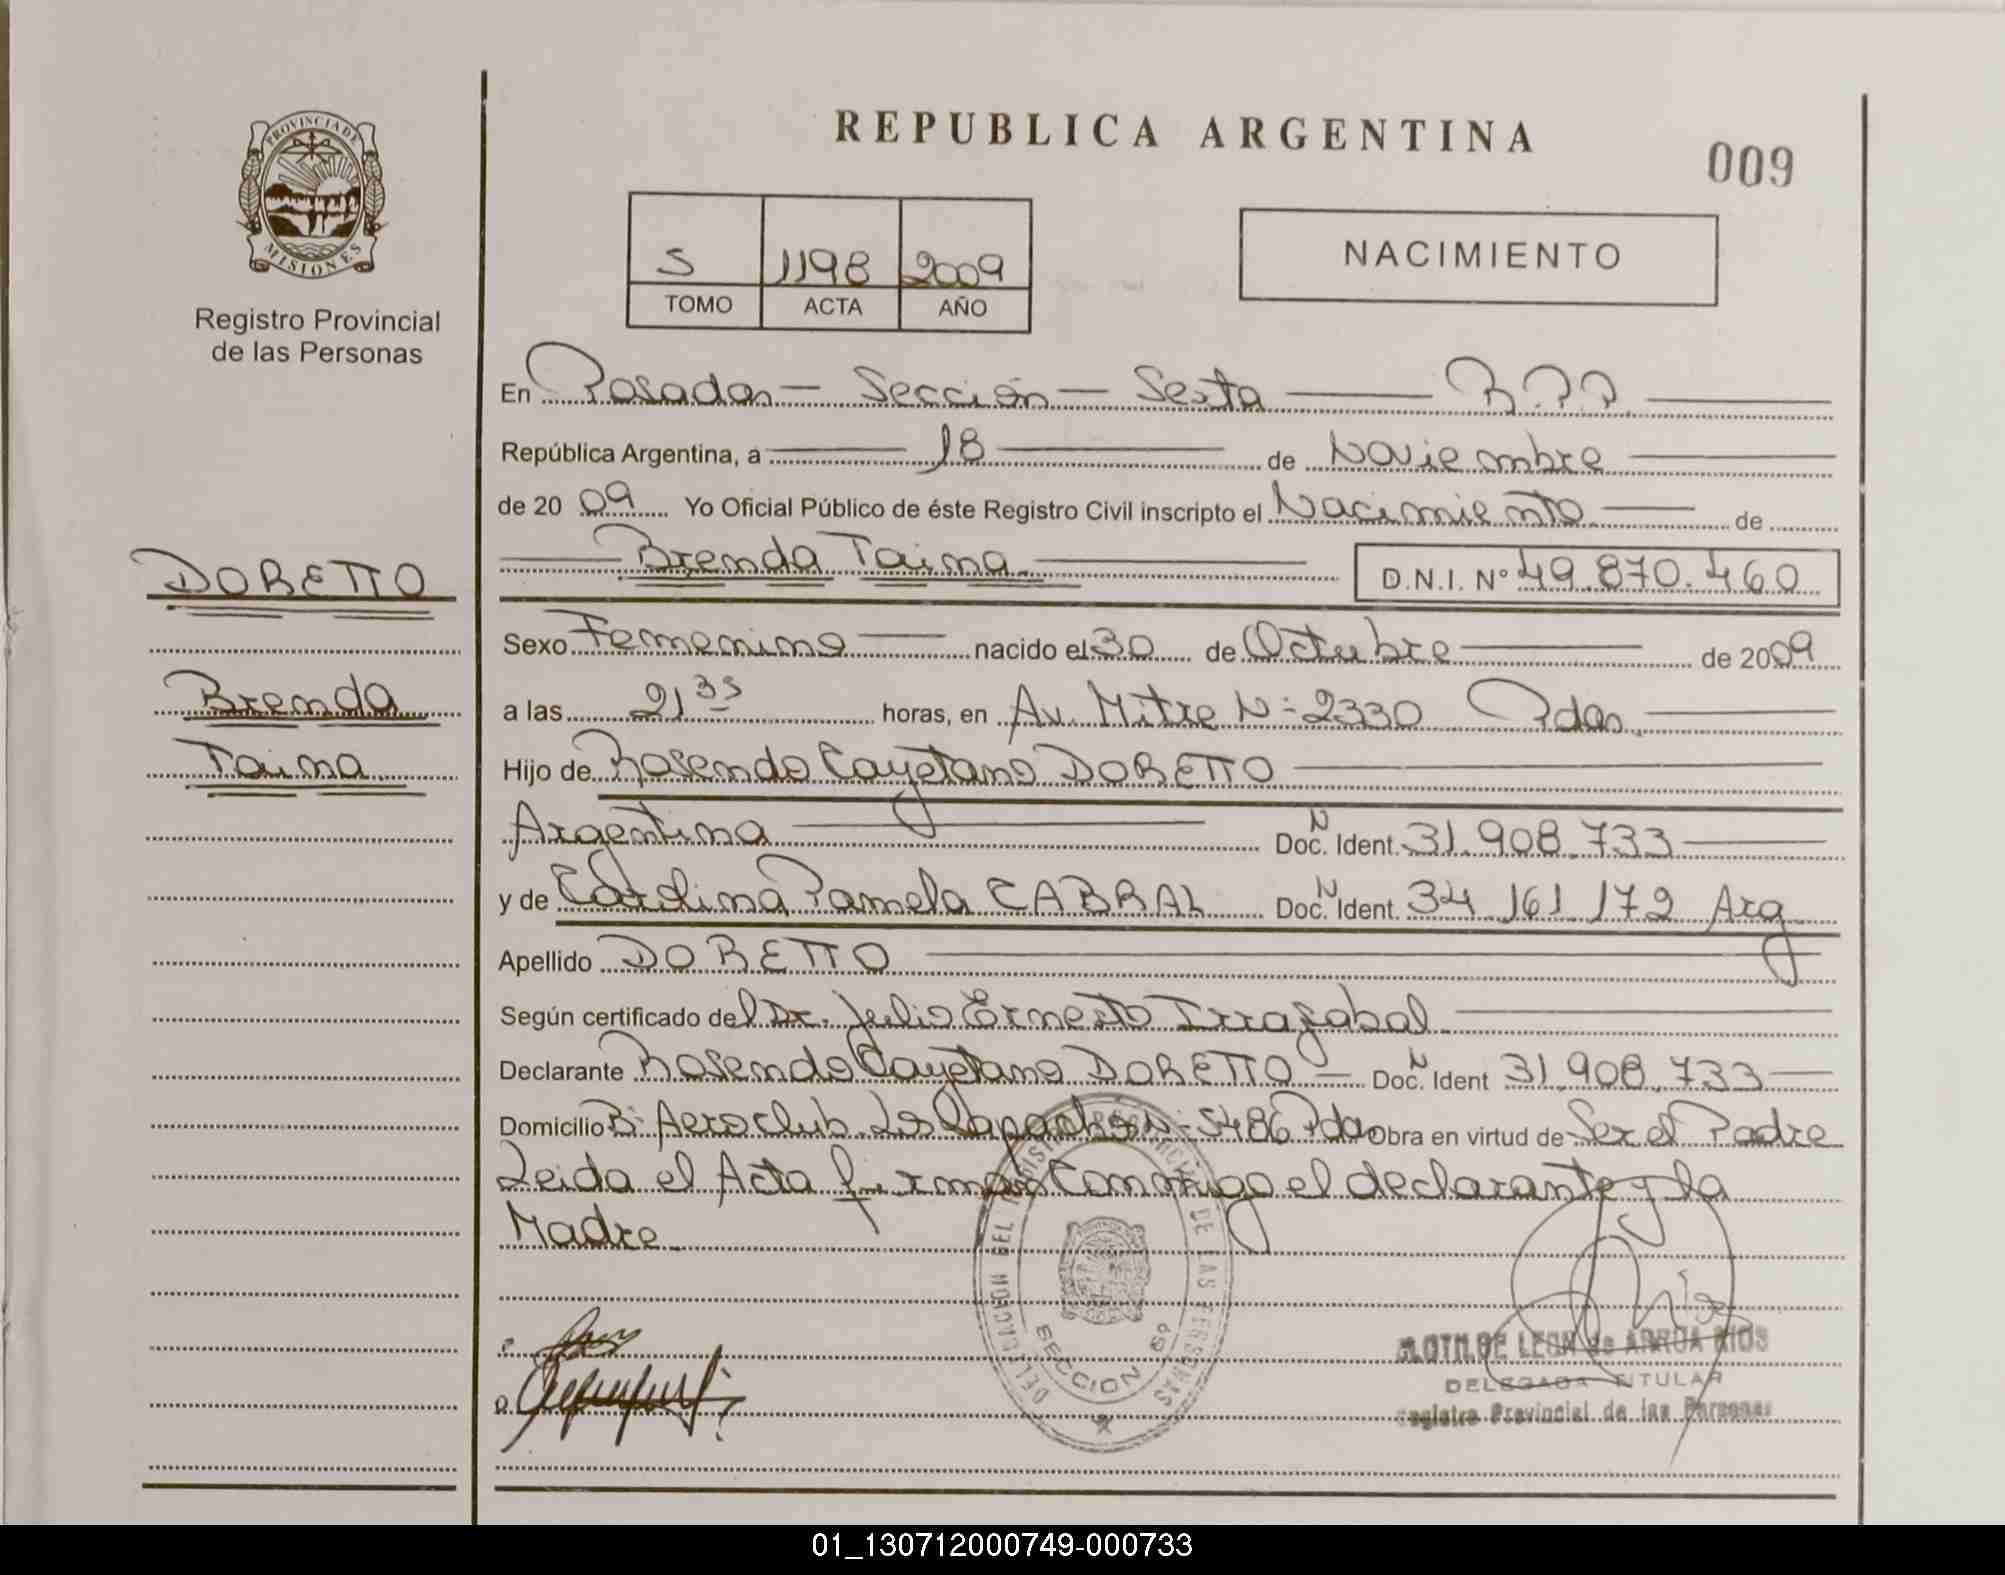 PROVINCIA DE
MISIONES
Registro Provincial
de las Personas
DORETTO
Brenda
Taina
REPUBLICA ARGENTINA
009
S 1198 2009
TOMO ACTA AÑO
NACIMIENTO
En Posadas - Sección - Sexta R.P.P.
República Argentina, a 18 de Noviembre
de 2009 Yo Oficial Público de éste Registro Civil inscripto el Nacimiento de
Brenda Taina D.N.I. Nº 49.870.460
Sexo Femenino nacido el 30 de Octubre de 2009
a las 21 35 horas, en Av. Mitre N=2330 Pdas.
Hijo de Rosendo Cayetano DORETTO
Argentina Doc. N Ident. 31.908.733
y de Carolina Pamela CABRAL Doc. N Ident. 34.161.172 Arg
Apellido DORETTO
Según certificado del Dr. Julio Ernesto Irrazabal
Declarante Rosendo Cayetano DORETTO - Doc. N Ident 31.908.733
Domicilio Bº Aeroclub Los Lapachos N- 5486 Pdas Obra en virtud de Ser el Padre
Leida el Acta firman conmigo el declarante y la
Madre
DELEGACION DEL REGISTRO PROVINCIAL DE LAS PERSONAS
SECCION 6º
CLOTILDE LEON de ARRUA RIOS
DELEGADA TITULAR
Registro Provincial de las Personas
01_130712000749-000733